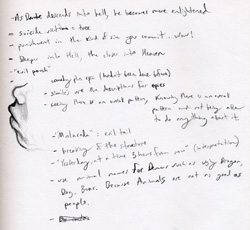 - As Dante descends into hell, he becomes more enlightened
- suicide victims = tree
- punishment in the kind of sin you commit... wow!
- Deeper into Hell, the closer into Heaven
- "evil pouch"
(hadn't been done before)
- similes are the descriptions for epics
- seeing there is an overall pattern, knowing there is an overall
pattern and not being able
to do anything about it
- "Malacoda" = evil tail
- breaking of the structure
- "Yesterday, at a time 5 hours from now" (interpretation)
- use animal names for Demons such as ugly Dragon,
Dog, Boar. Because Animals are not as good as
people.